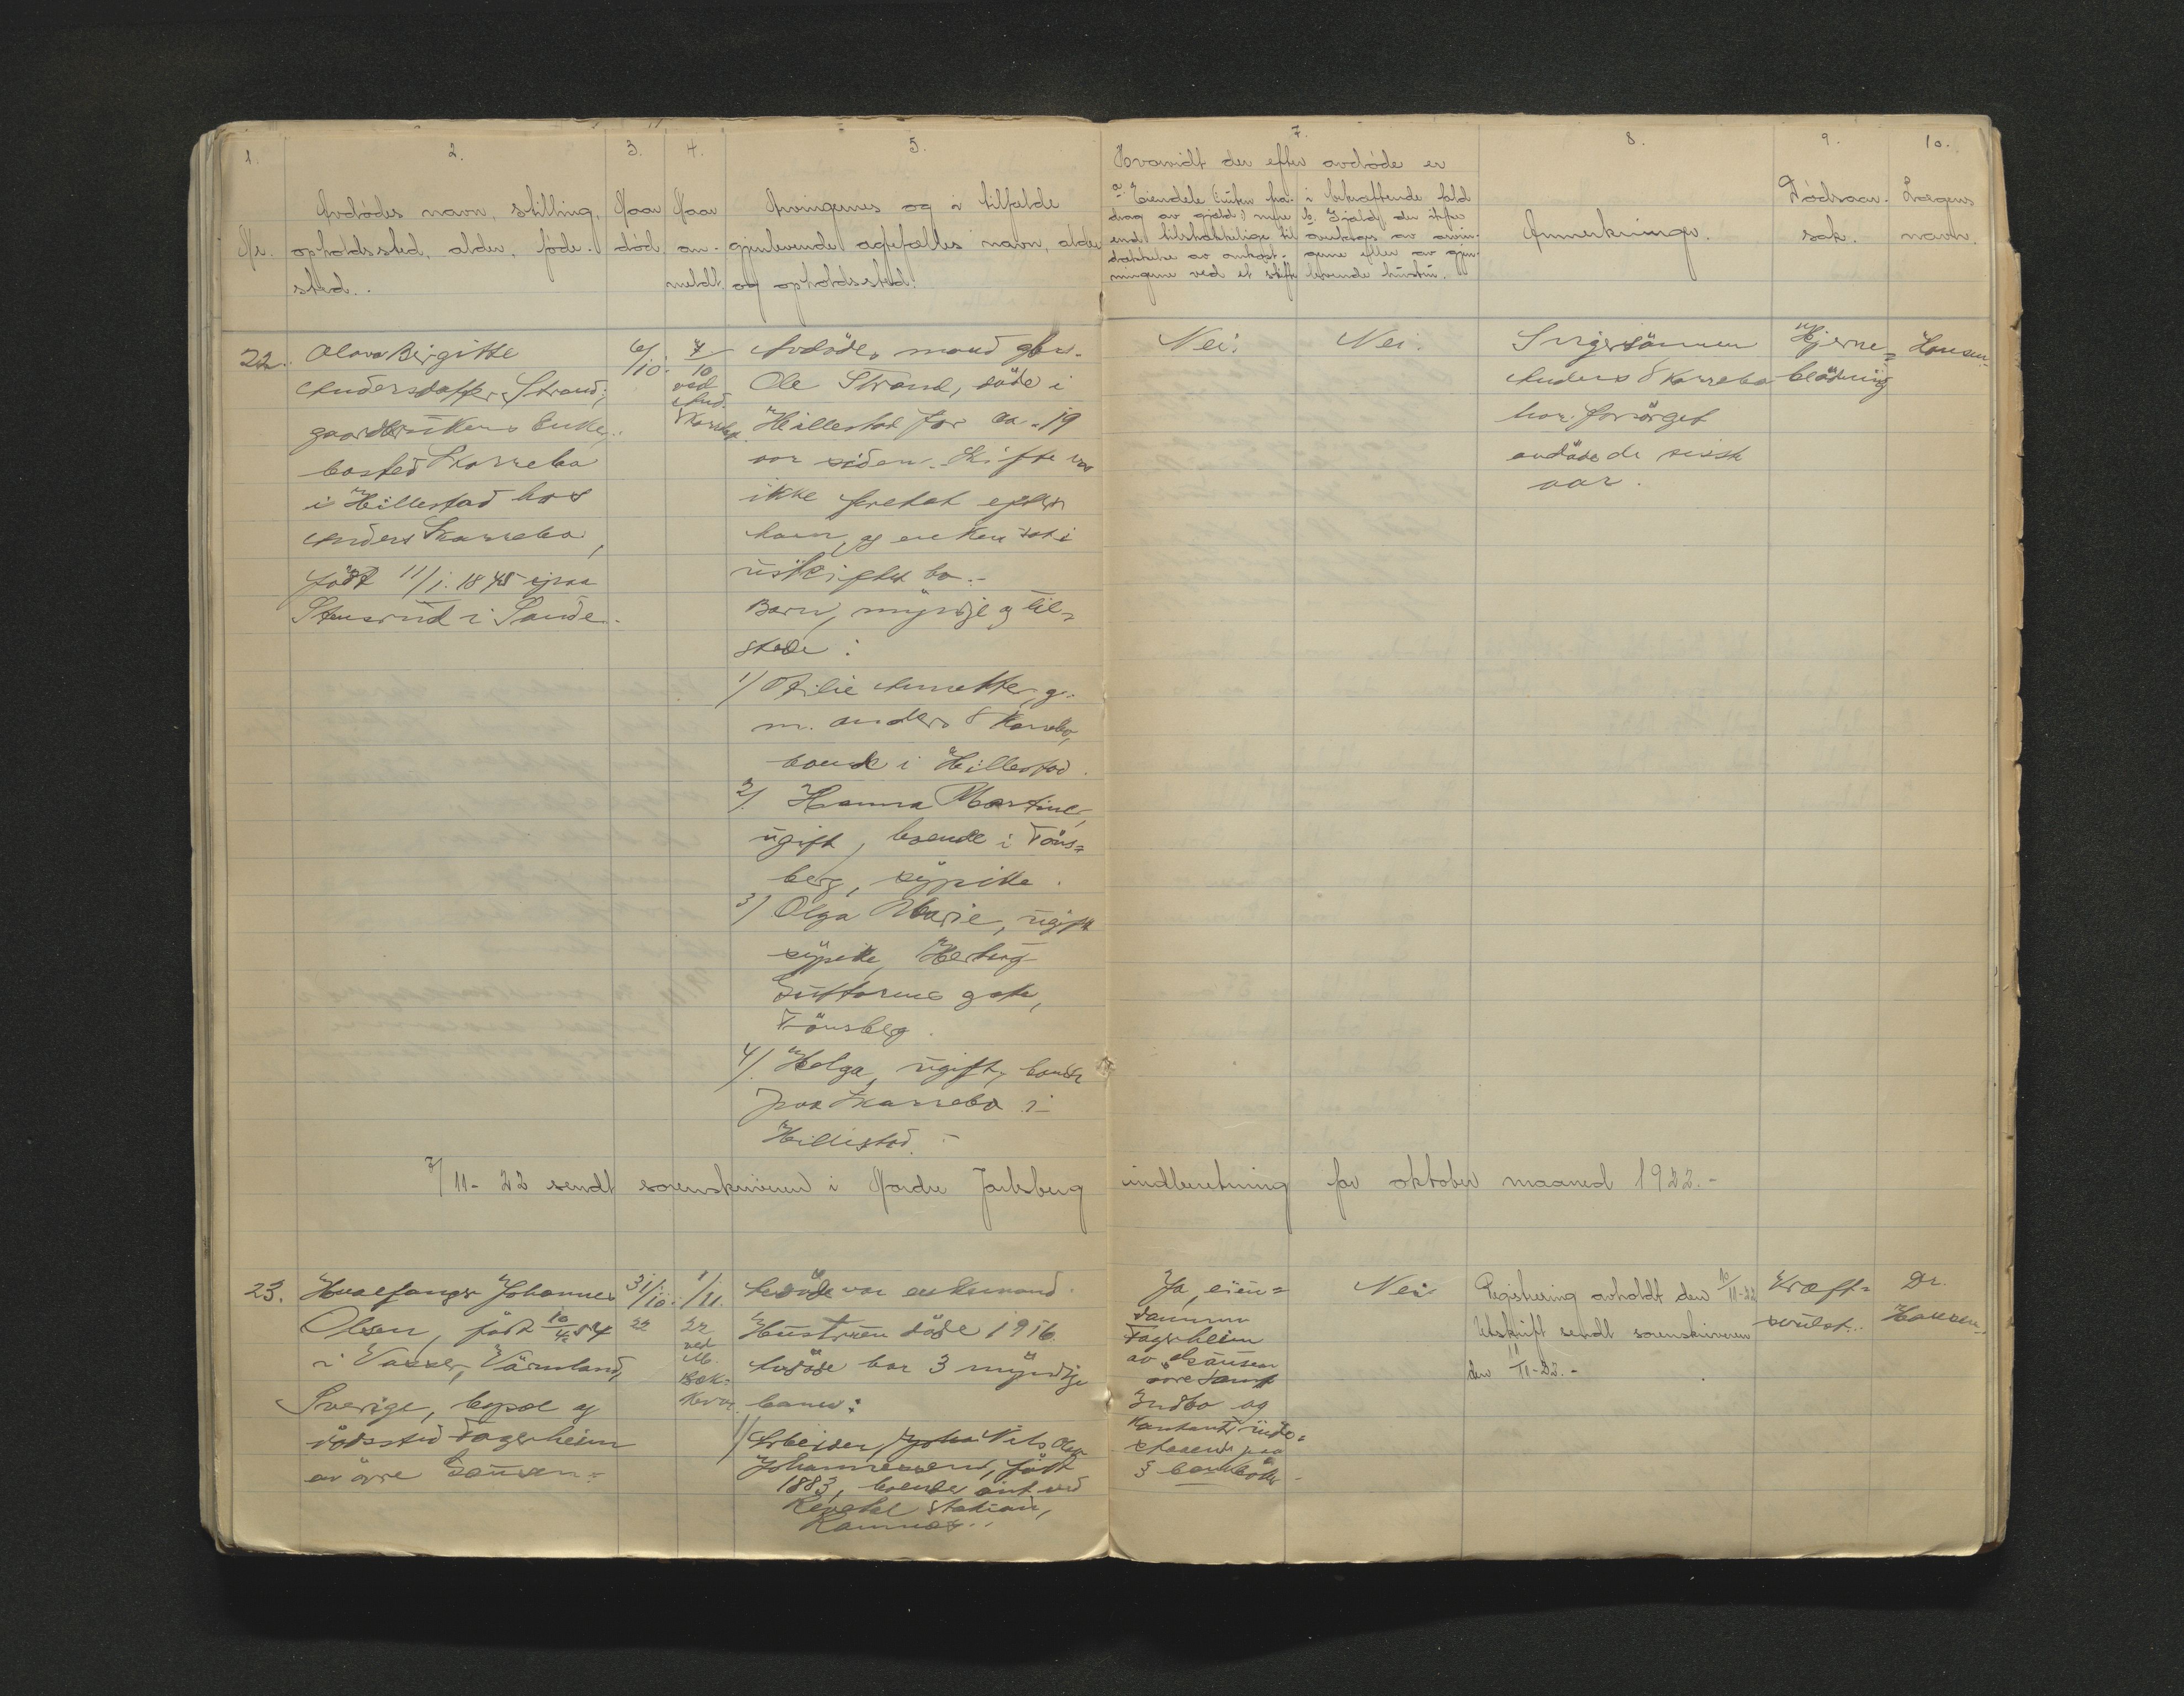 1.
2.
3.
4.
5.
7.
8.
9.
10.
Nr.
Avdødes navn, stilling,
opholdssted, alder, føde-
sted.
Naar
død
Naar
an-
meldt
Arvingernes og i tilfælde
gjenlevende ægtefælles navn, alder
og opholdssted.
Hvorvidt der efter avdøde er
a. Eiendele (uten fra-
drag av gjæld) mere
end tilstrækkelige til
dækkelse av omkost-
ningene ved et skifte
i bekræftende fald
b. Gjæld, der ikke
overtages av arvin-
gerne eller av gjen-
levende hustru.
Anmerkninger.
Dødsaar-
sak.
Lægens
navn.
22.
Olava Birgitte
Andersdatter Strand,
gaardbrukers Enke,
bosted Skarrebo
i Hillestad hos
Anders Skarrebo,
født 11/1. 1845 paa
i Sande.
6/10.
7/10
ved
And.
Skarrebo
Avdødes mand gbr.
Ole Strand, døde i
Hillestad for ca. 19
aar siden. Skifte var
ikke foretat efter
ham, og enken sat i
uskiftet bo.-
Barn, myndige og til-
stede:
1/ Otilie Annette, g.
m. Anders Skarrebo,
boende i Hillestad.
2/. Hanna Martine,
ugift, boende i Töns=
berg, sypike.
3/ Olga Marie, ugift
sypike, Hertug
Guttorms gate,
Tönsberg.
4/. Helga, ugift, boende
paa Skarrebo i
Hillestad.-
Nei.
Nei.
Svigersönnen
Anders Skarrebo
har forsörget
avdöde de sisste
aar.
Hjerne=
blödning
Hansen
3/11-22 sendt sorenskriveren i Nordre Jarlsberg indberetning for oktober maaned 1922.-
23.
Hvalfanger Johannes
Olsen, født 10/4 54
i Värmland,
Sverige, bopæl og
dödssted Fagerheim
av övre Gausen.-
31/10.
22
1/11.
22
ved
M.
Bæk-
Avdöde var enkemand.
Hustruen döde 1916.
Avdöde har 3 myndige
barn:
1/ Arbeider, Nils Olav
Johannessen, født
1883, boende ved
Revetal station,
Ramnes..
Ja, eien=
dommen
Fagerheim
av Gausen
övre samt
Indbo og
Kontant inde=
staaende paa
3 bankböker.
Nei
Registrering avholdt den 10/11-22
Utskrift sendt sorenskriveren
den 11/11-22.-
Kræft=
svulst..
Dr.
Hansen.